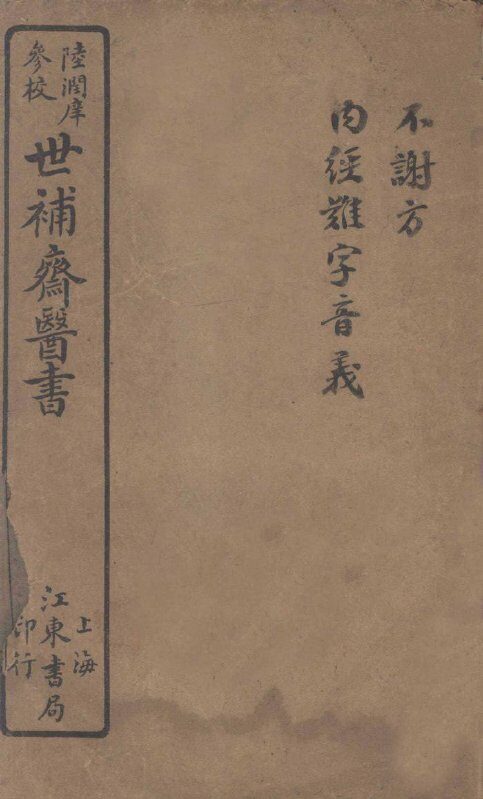 不謝方
內經難字音義
陸潤庠
參校
世補齋醫書
上海
江東書局
印行